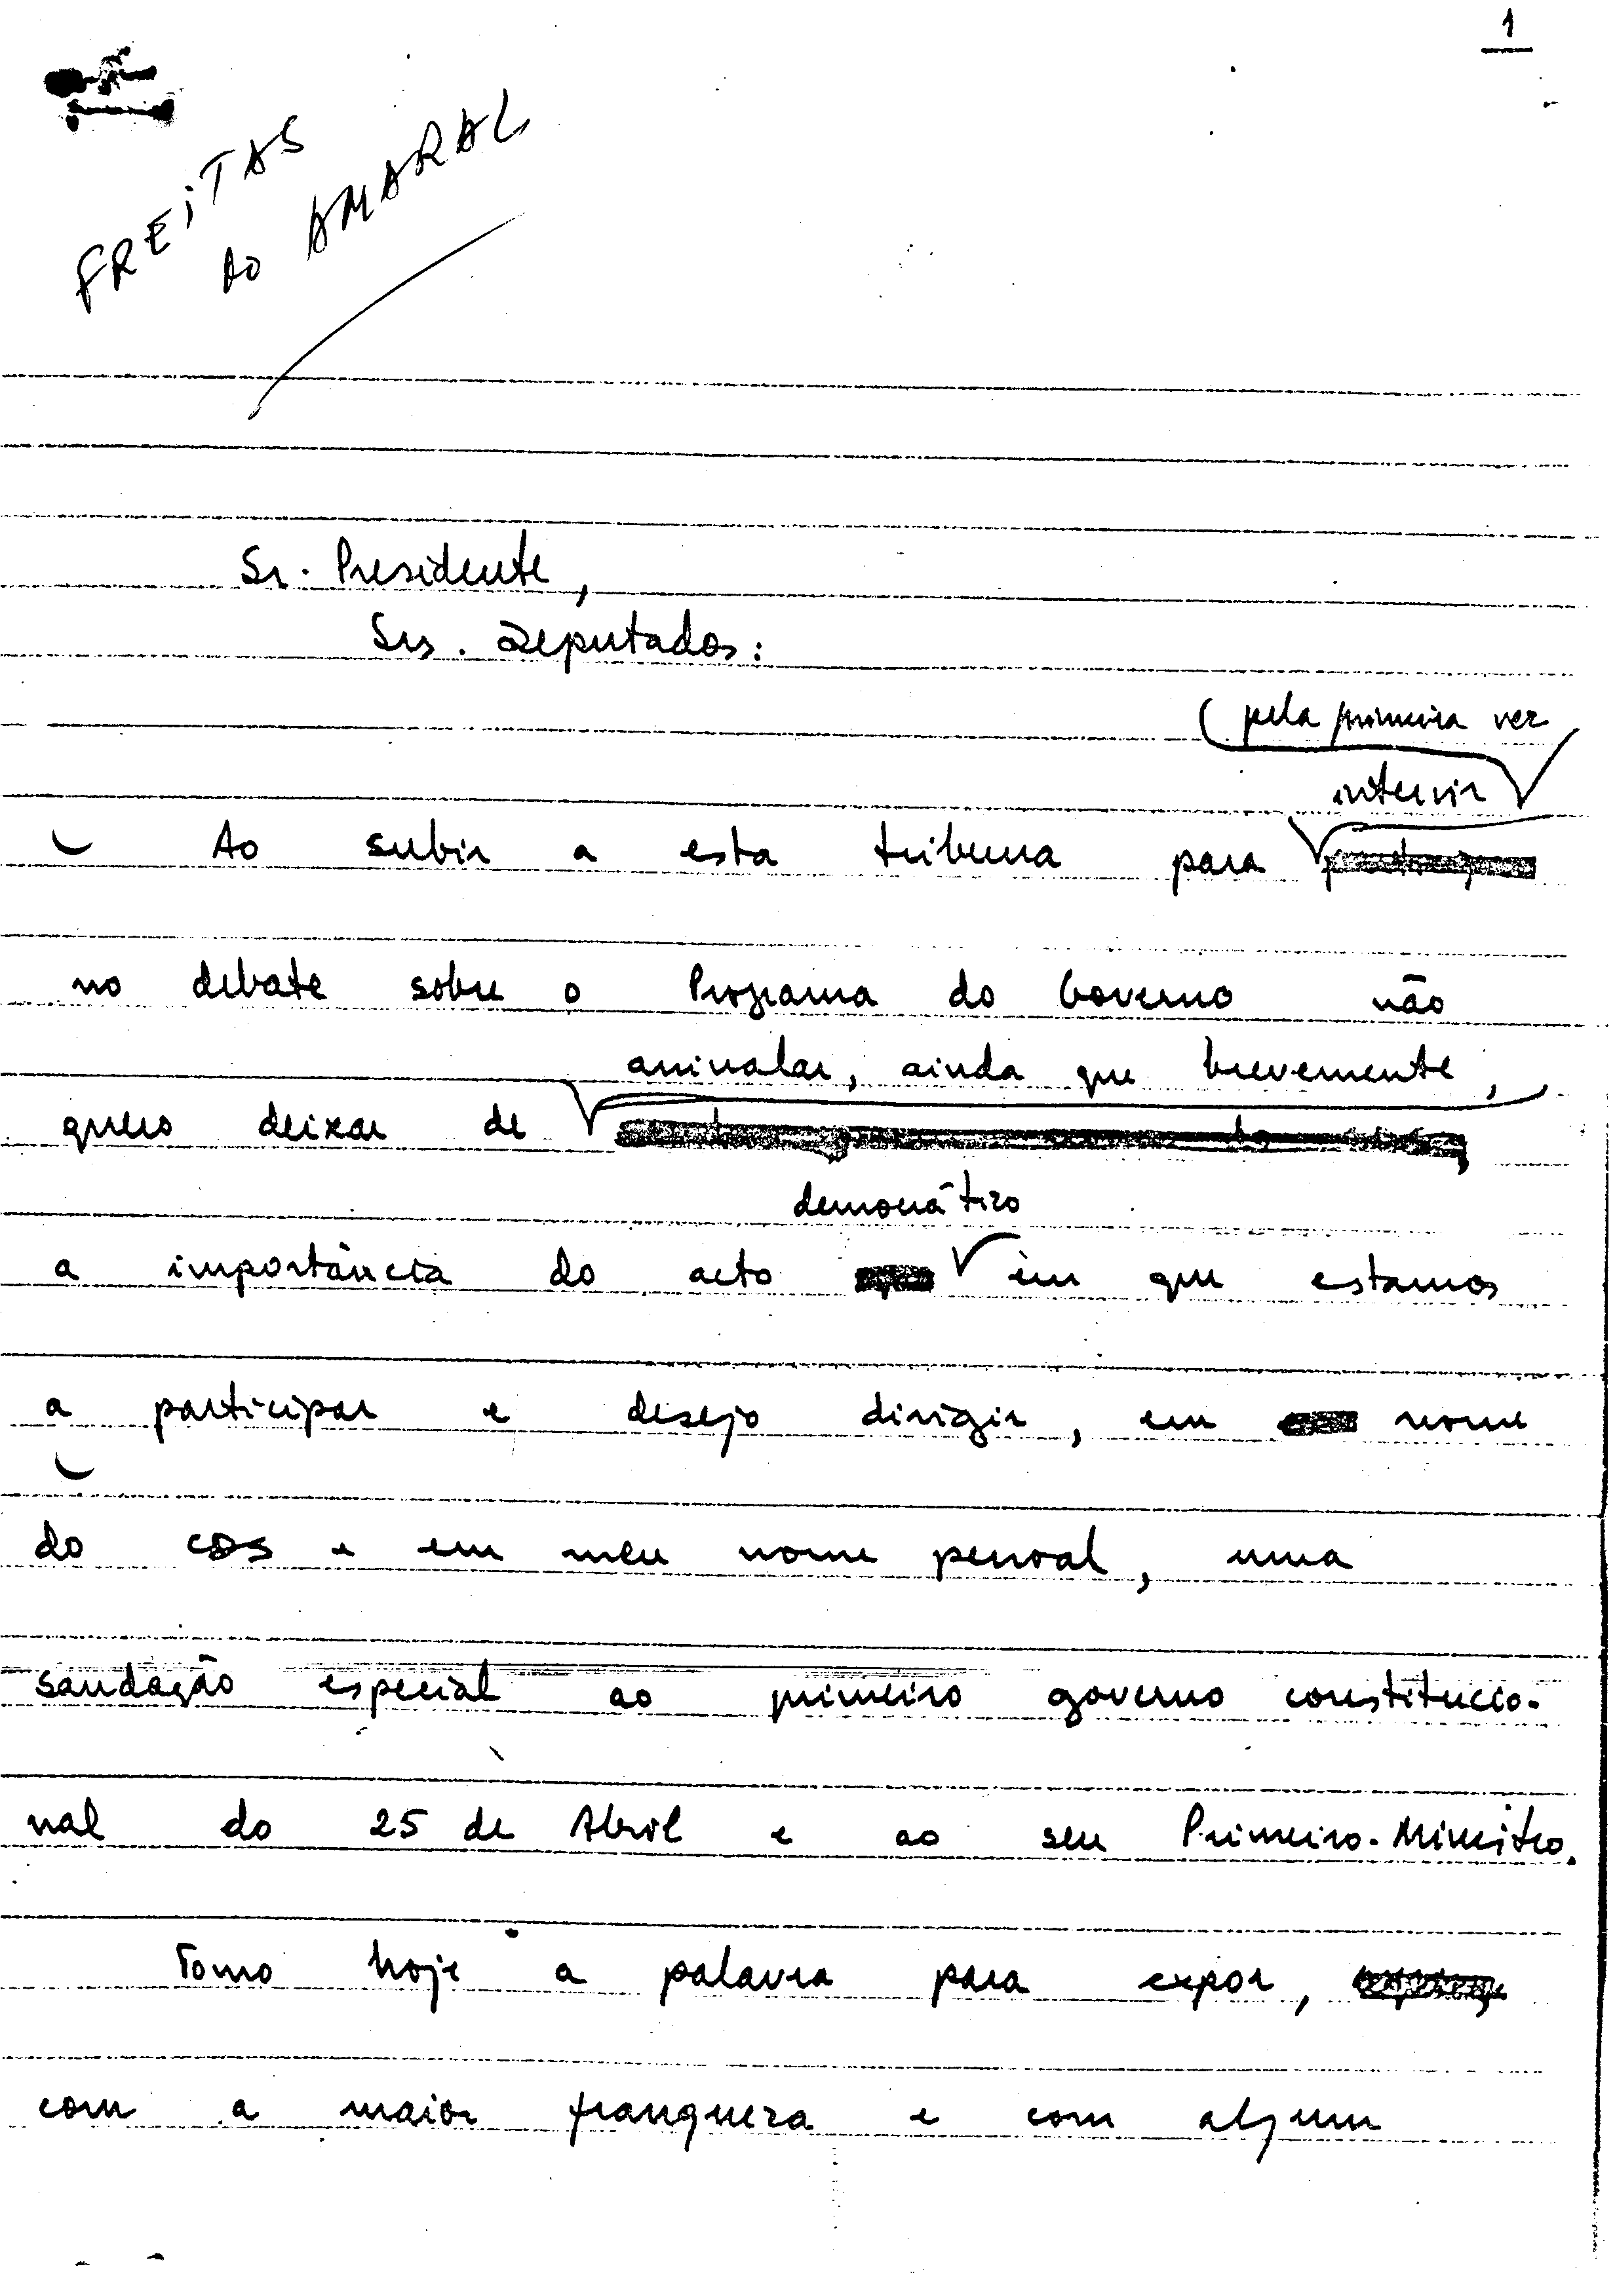 1
FREITAS
do AMARAL
Sr. Presidente,
Srs. Deputados:
(pela primeira vez
intervir
Ao subir a esta tribuna para
no debate sobre o Programa do Governo não
assinalar, ainda que brevemente,
quero deixar de
democrático
a importância do acto em que estamos
a participar e desejo dirigir, em nome
do CDS e em meu nome pessoal, uma
saudação especial ao primeiro governo constitucio-
nal do 25 de Abril e ao seu Primeiro-Ministro.
Tomo hoje a palavra para expor,
com a maior franqueza e com algum